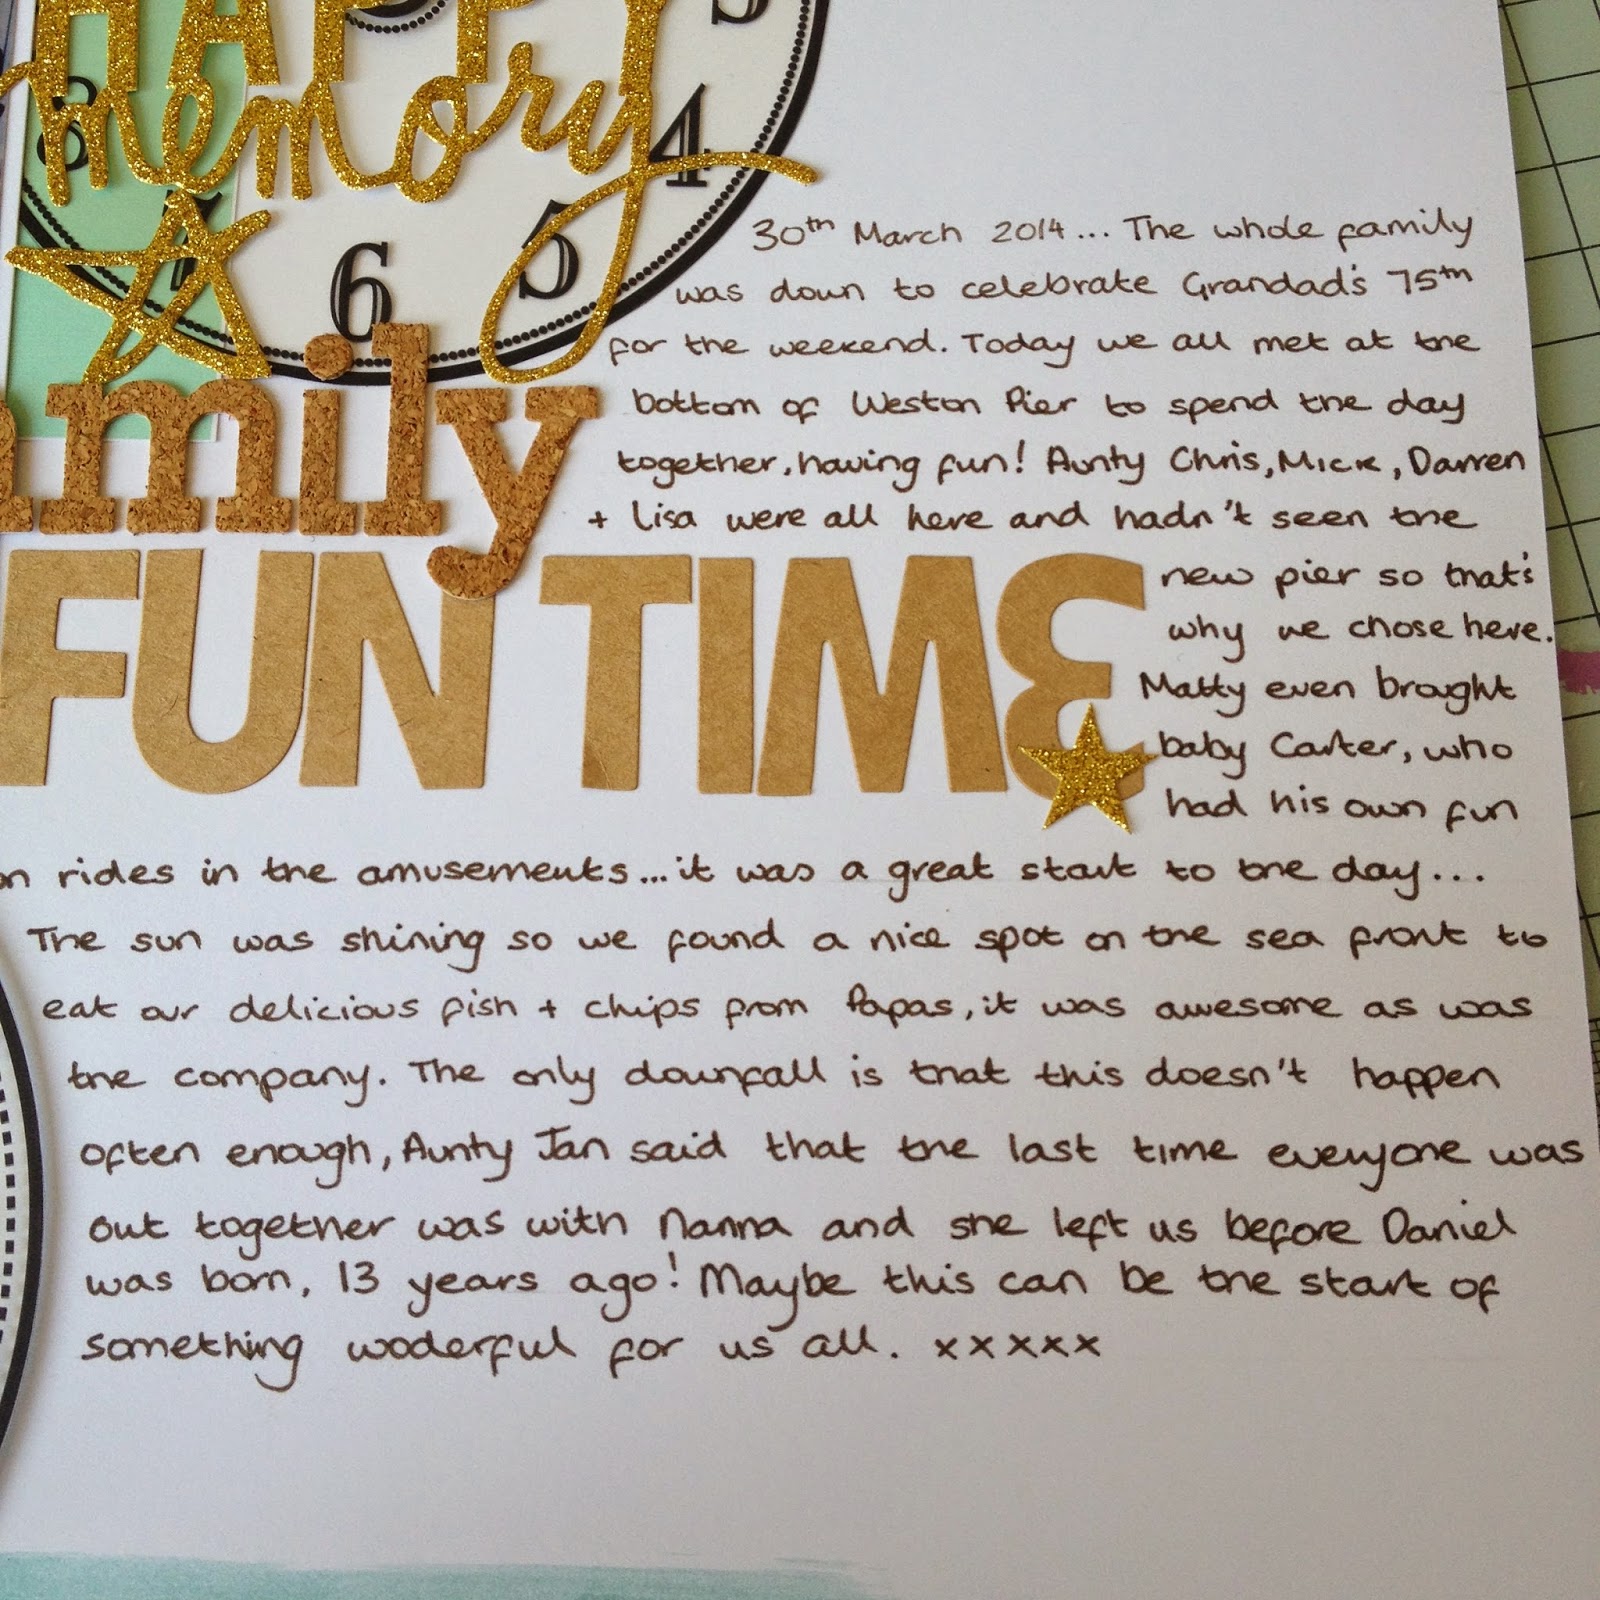 HAPPY
memory
3
4
5
6
7
8
mily
FUN TIME
30th March 2014... The whole family
was down to celebrate Grandad's 75th
for the weekend. Today we all met at the
bottom of Weston Pier to spend the day
together, having fun! Aunty Chris, Mick, Darren
+ Lisa were all here and hadn't seen the
new pier so that's
why we chose here.
Matty even brought
baby Carter, who
had his own fun
on rides in the amusements...it was a great start to the day...
The sun was shining so we found a nice spot on the sea front to
eat our delicious fish + chips from Papas, it was awesome as was
the company. The only downfall is that this doesn't happen
often enough, Aunty Jan said that the last time everyone was
out together was with Nanna and she left us before Daniel
was born, 13 years ago! Maybe this can be the start of
something woderful for us all. xxxxx